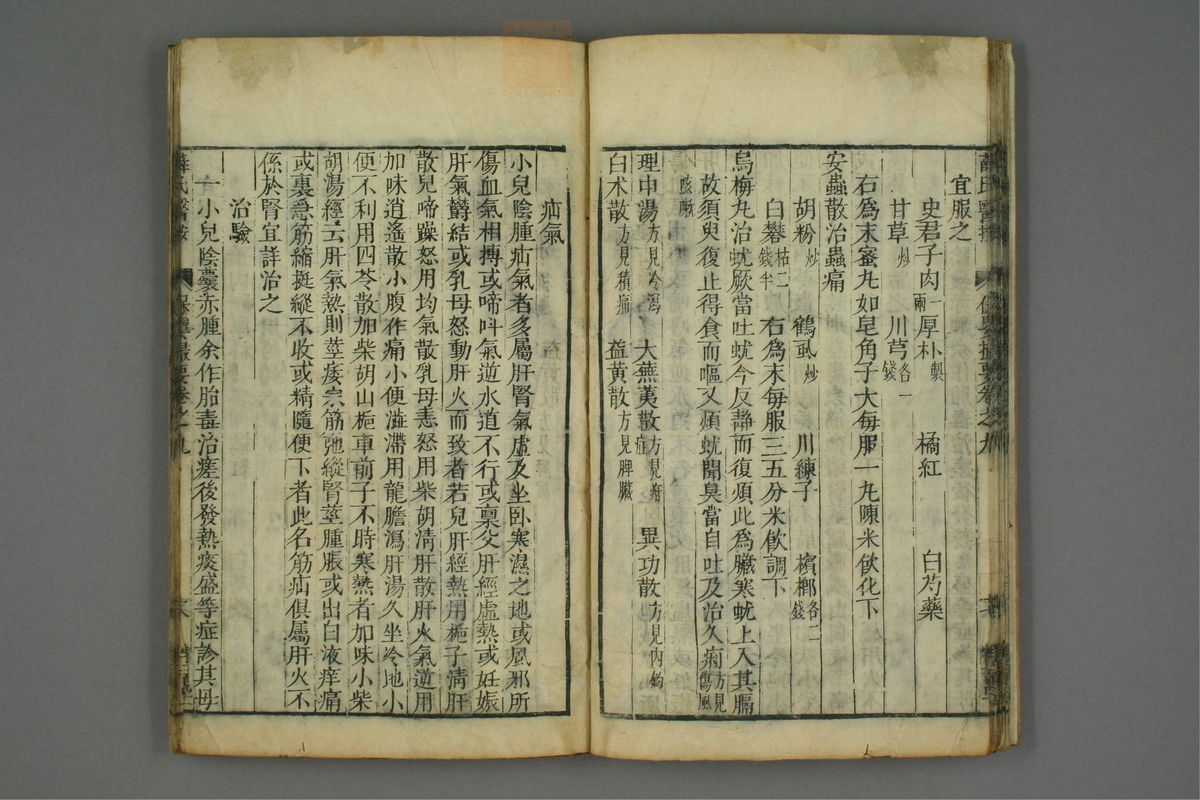 薛氏醫按 保嬰撮要卷之九
宜服之
史君子肉一兩 厚朴製 橘紅 白芍藥
甘草炒 川芎各一錢
右爲末蜜丸如皂角子大每服一丸陳米飲化下
安蟲散治蟲痛
胡粉炒 鶴虱炒 川練子 檳榔各二錢
白礬枯二錢半 右爲末每服三五分米飲調下
烏梅丸治蚘厥當吐蚘今反靜而復煩此爲臟寒蚘上入其膈
故須臾復止得食而嘔又煩蚘聞臭當自吐及治久痢方見傷風咳嗽
理中湯方見冷瀉 大蕪荑散方見疳症 異功散方見內釣
白术散方見積痛 益黃散方見脾臟
疝氣
小兒陰腫疝氣者多屬肝腎氣虛及坐卧寒濕之地或風邪所
傷血氣相搏或啼呌氣逆水道不行或稟父肝經虛熱或妊娠
肝氣欝結或乳母怒動肝火而致者若兒肝經熱用梔子清肝
散兒啼躁怒用均氣散乳母恚怒用柴胡清肝散肝火氣逆用
加味逍遙散小腹作痛小便澁滯用龍膽瀉肝湯久坐冷地小
便不利用四苓散加柴胡山梔車前子不時寒熱者加味小柴
胡湯經云肝氣熱則莖痿宗筋弛縱腎莖腫脹或出白液痒痛
或裏急筋縮挺縱不收或精隨便下者此名筋疝俱屬肝火不
係於腎宜詳治之
治驗
一小兒陰囊赤腫余作胎毒治瘥後發熱痰盛等症診其母
薛氏醫按 保嬰撮要卷之九